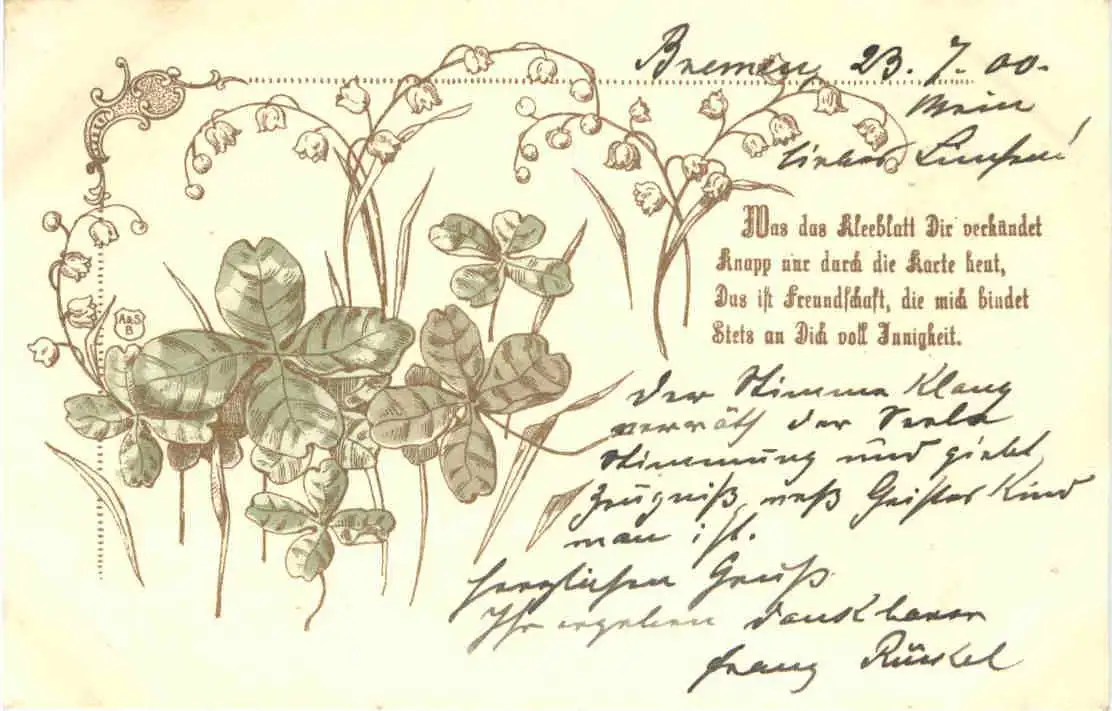 Bremen, 23. 7. 00.
Mein
liebes
Was das Kleeblatt Dir verkündet
Knapp nur durch die Karte heut,
Das ist Freundschaft, die mich bindet
Stets an Dich voll Innigkeit.
A&S
B
Der Stimme Klang
verräth der Seele
Stimmung und giebt
Zeugniß, weß Geistes Kind
man ist.
Herzlichen Gruß
Ihr ergeben dankbarer
Franz